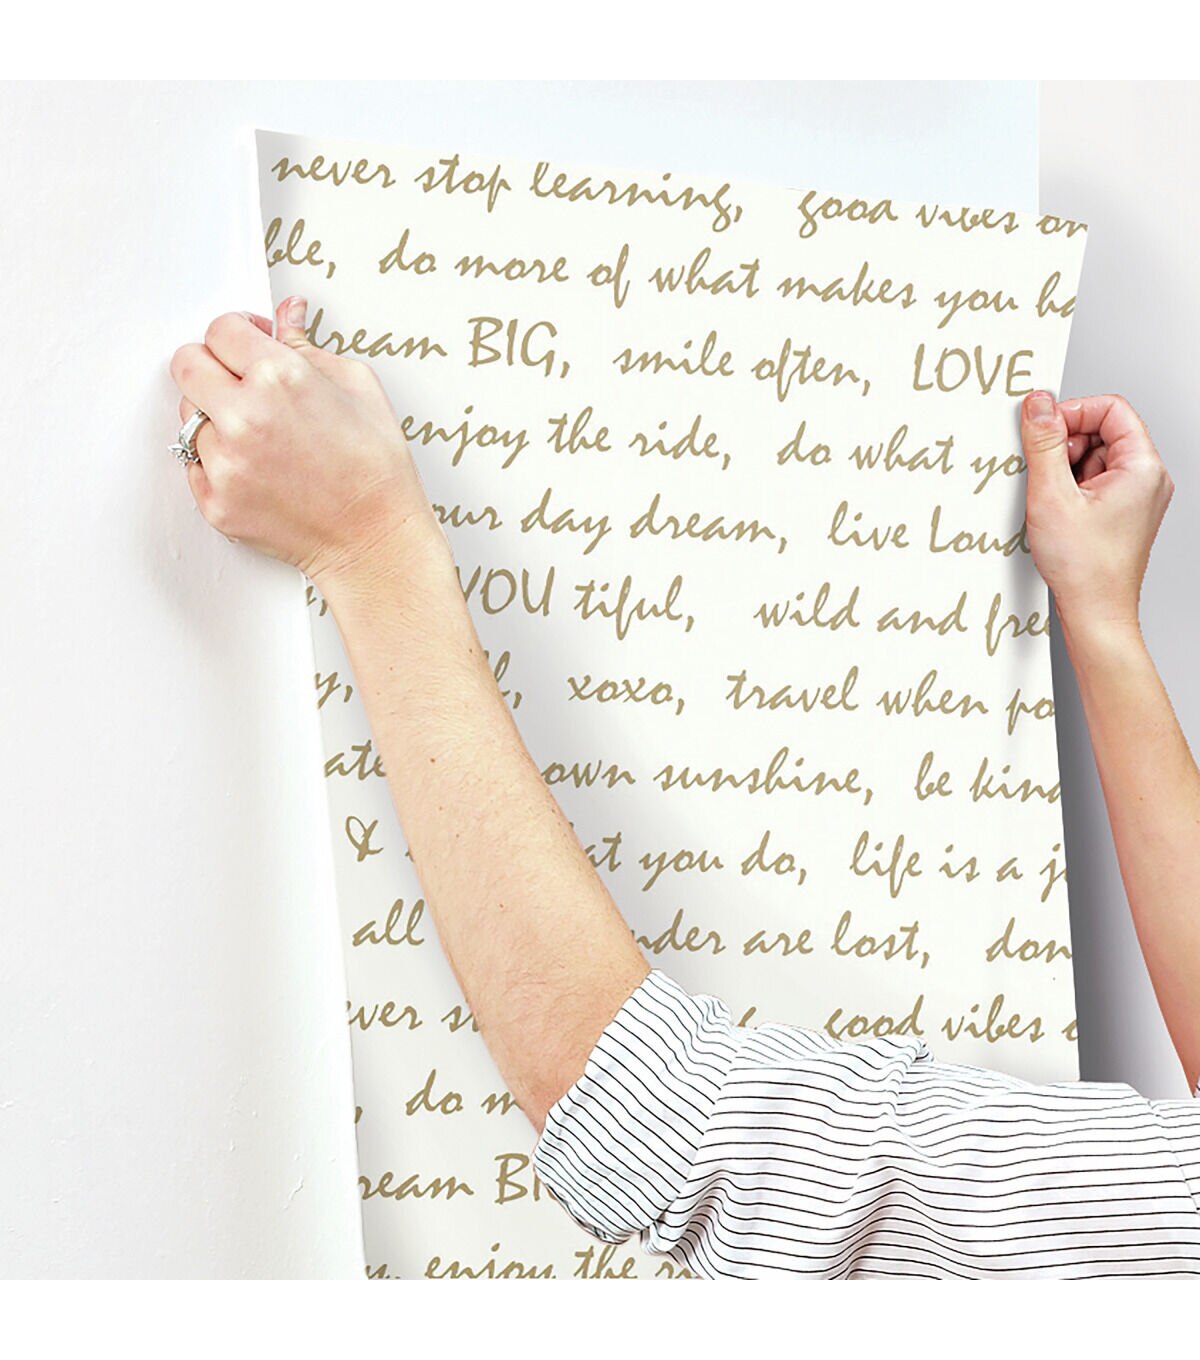 never stop learning, good vibes on
ble, do more of what makes you ha
dream BIG, smile often, LOVE
enjoy the ride, do what yo
our day dream, live Loud
YOU tiful, wild and free
y, f, xoxo, travel when po
ate own sunshine, be kind
& at you do, life is a j
all nder are lost, don
ever st g good vibes o
, do m
ream BI
y, enjoy the ri